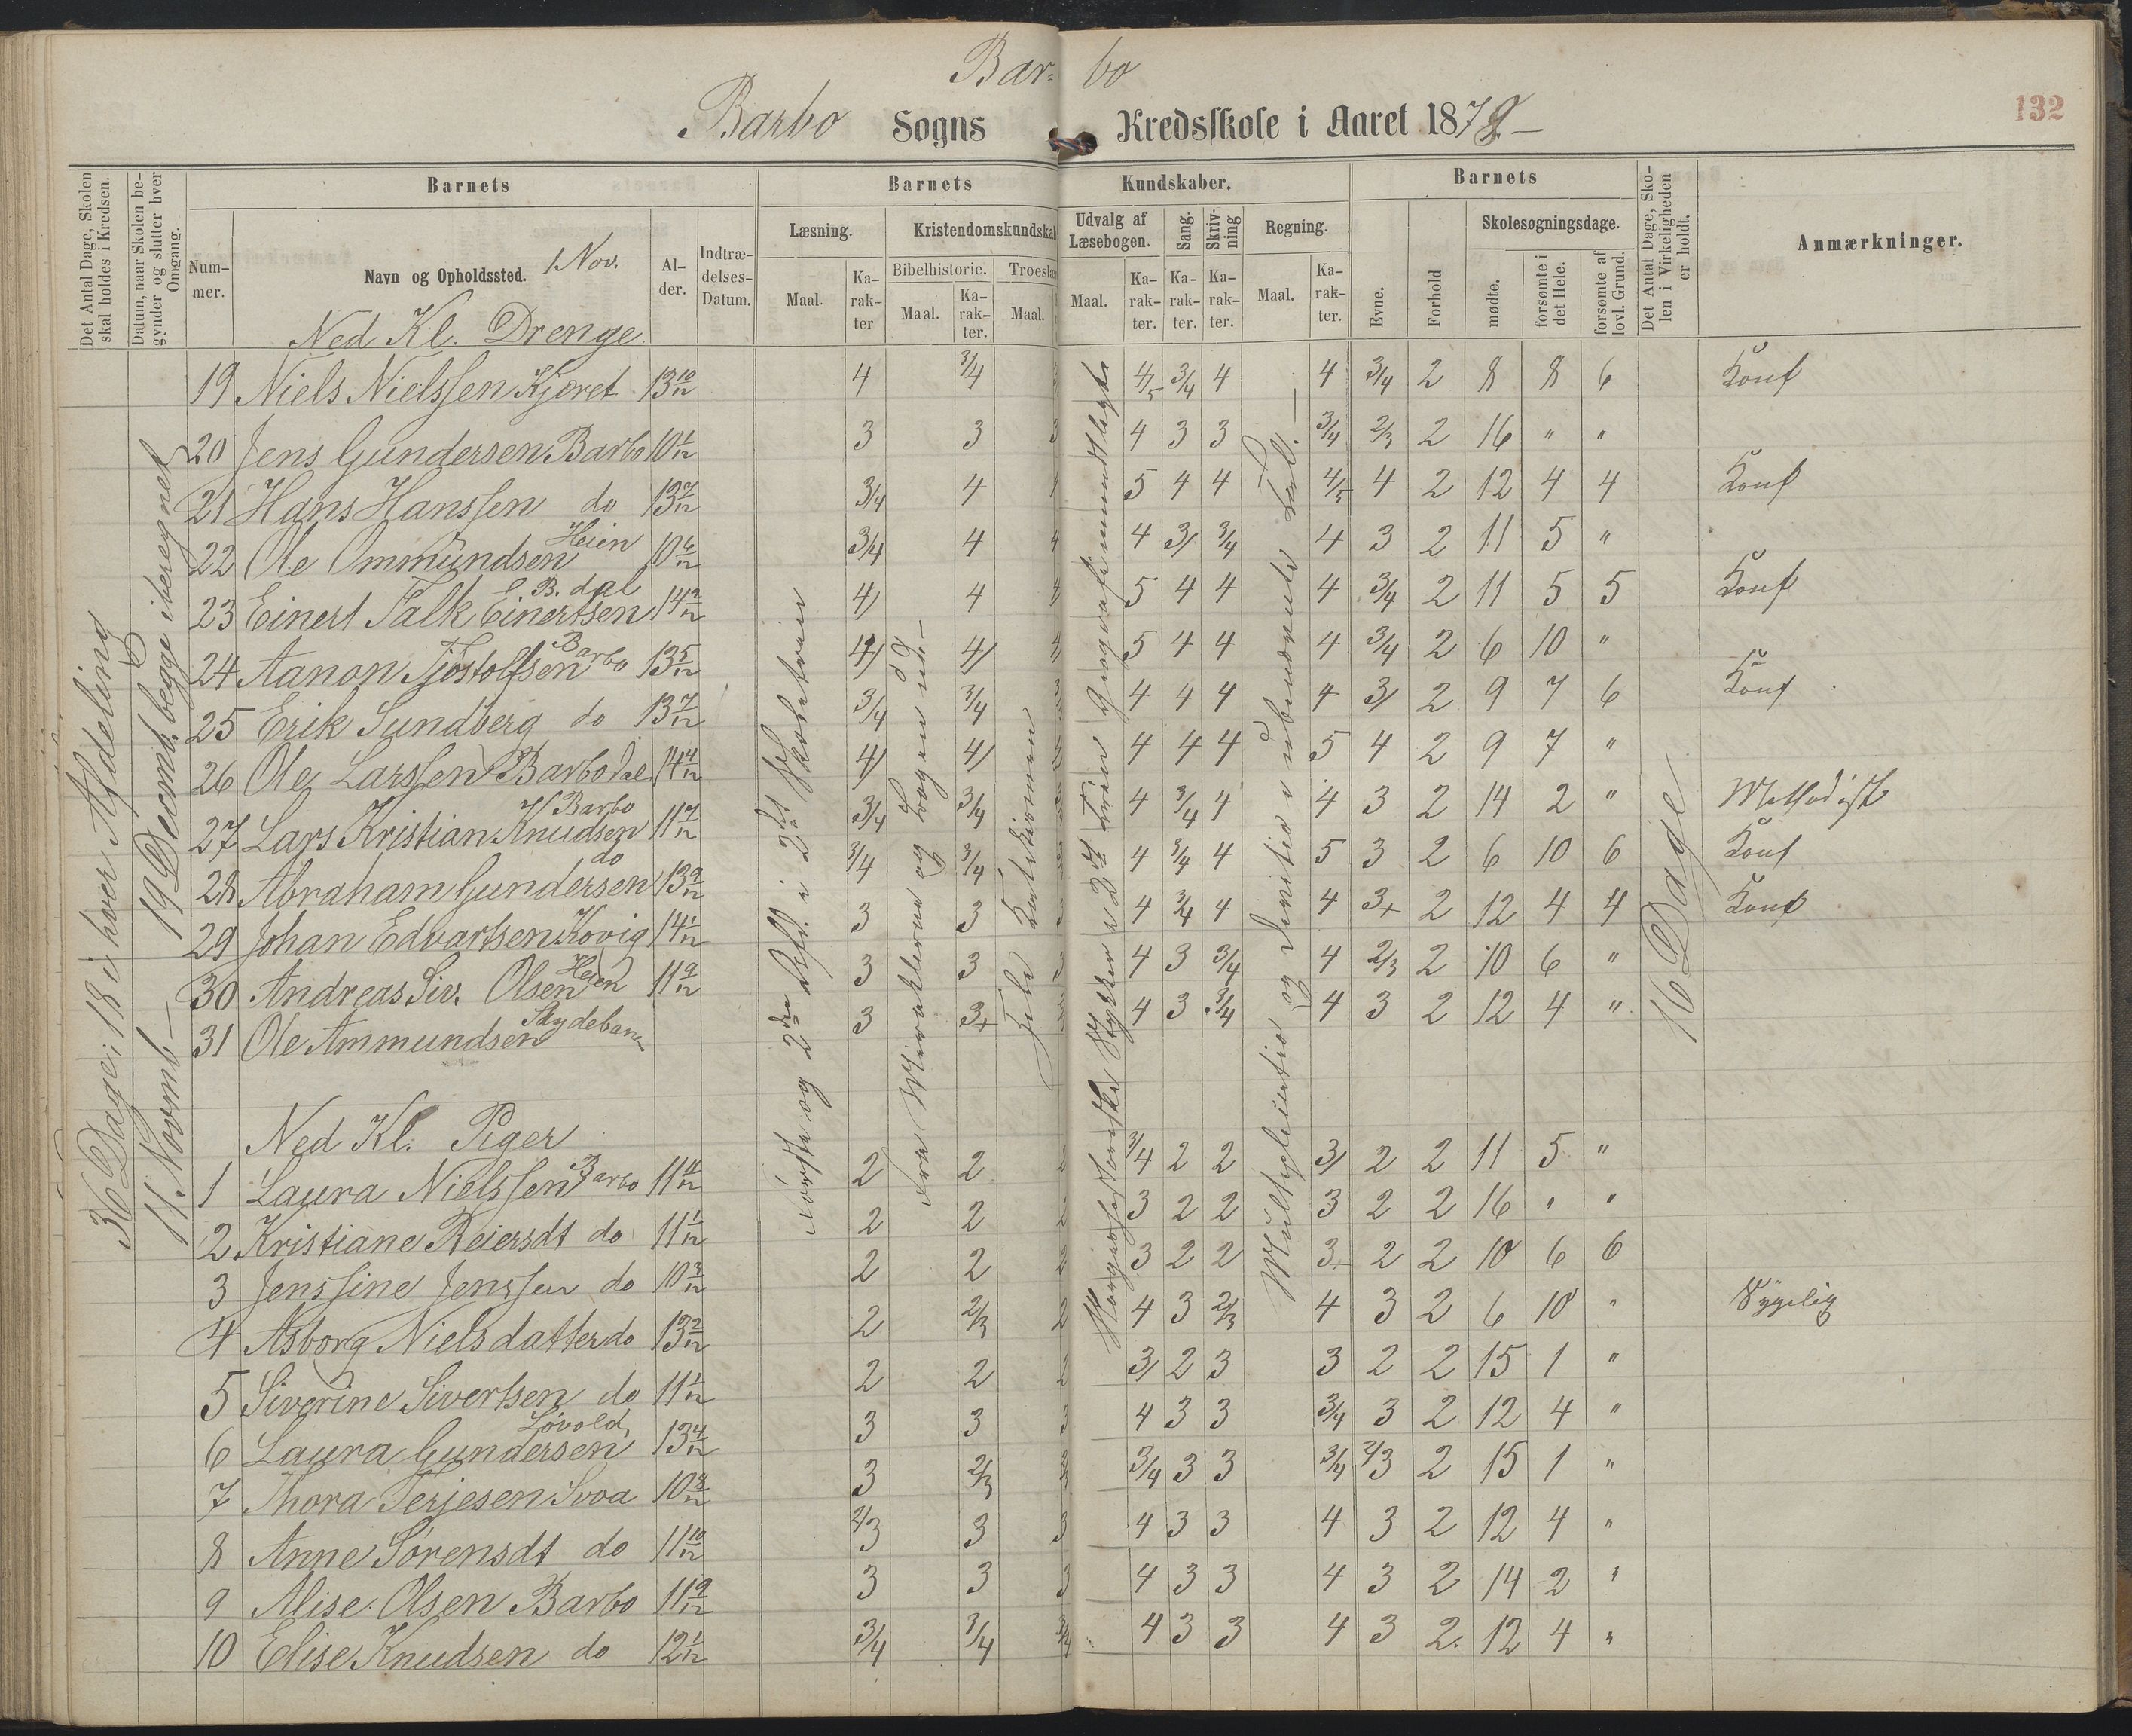 Bar- bo
132
Barbo Sogns Kredsskole i Aaret 1879
Det Antal Dage, Skolen skal holdes i Kredsen.
Datum, naar Skolen begynder og slutter hver Omgang.
Barnets
Barnets Kundskaber.
Barnets
Det Antal Dage, Skolen i Virkeligheden er holdt.
Anmærkninger.
Nummer.
Navn og Opholdssted. 1 Nov.
Alder.
Indtrædelses-Datum.
Læsning.
Kristendomskundskab
Udvalg af Læsebogen.
Sang.
Skrivning
Regning.
Evne.
Forhold
Skolesøgningsdage.
Bibelhistorie.
Troeslæ
Maal.
Karakter
Maal.
Karakter.
Maal.
Maal.
Karakter.
Karakter.
Karakter.
Maal.
Karakter.
mødte.
forsømte i det Hele.
forsømte af lovl. Grund.
36 Dage; 18 i hver Afdeling
11. Novemb — 19 Decemb. begge iberegnet
16 Dage
Ned Kl. Drenge
19 Niels Nielssen Kjæret 13 10/12 4 3/4 4/5 3/4 4 4 3/4 2 8 8 6 Konf
20 Jens Gundersen Barbo 10 1/12 3 3 3 4 3 3 3/4 2/3 2 16 " "
21 Hans Hanssen do 13 7/12 3/4 4 4 5 4 4 4/5 4 2 12 4 4 Konf
22 Ole Ommundsen Heien 10 6/12 3/4 4 4 4 3/ 3/4 4 3 2 11 5 "
23 Einert Falk Einertsen B. dal 14 2/12 4/ 4 4 5 4 4 4 3/4 2 11 5 5 Konf
24 Aanon Tjøstolfsen Barbo 13 5/12 4/ 4/ 4 5 4 4 4 3/4 2 6 10 "
25 Erik Sundberg do 13 7/12 3/4 3/4 4 4 4 4 3/ 2 9 7 6 Konf
26 Ole Larssen Barbodal 14 4/12 4/ 4/ 4 4 4 5 4 2 9 7 "
27 Lars Kristian Knudsen Barbo 11 7/12 3/4 3/4 4 3/4 4 4 3 2 14 2 " Methodist
28 Abraham Gundersen do 13 9/12 3/4 3/4 4 3/4 4 5 3 2 6 10 6 Konf
29 Johan Edvartsen Kovig 14 1/12 3 3 4 3/4 4 4 3+ 2 12 4 4 Konf
30 Andreas Siv. Olsen Heien 11 9/12 3 3 4 3 3/4 4 2/3 2 10 6 "
31 Ole Ammundsen Skydebane 3 3+ 4 3 3/4 4 3 2 12 4 "
Ned Kl. Piger
1 Laura Nielssen Barbo 11 11/12 2 2 2 3/4 2 2 3/ 2 2 11 5 "
2 Kristiane Reiersdt do 11 1/12 2 2 2 3 2 2 3 2 2 16 " "
3 Jenssine Jenssen do 10 3/12 2 2 2 3 2 2 3+ 2 2 10 6 6
4 Asborg Nielsdatter do 13 2/12 2 2/3 2 4 3 2/3 4 3 2 6 10 " Sygelig
5 Siverine Sivertsen do 11 1/12 2 2 2 3/ 2 3 3 2 2 15 1 "
6 Laura Gundersen Løvold 13 4/12 3 3 3 4 3 3 3/4 3 2 12 4 "
7 Thora Terjesen Svoa 10 8/12 3 2/3 3 3/4 3 3 3/4 2/3 2 15 1 "
8 Anne Sørensdt do 11 10/12 2/3 3 3 4 3 3 4 3 2 12 4 "
9 Alise Olsen Barbo 11 9/12 3 3 3 4 3 3 4 3 2 14 2 "
10 Elise Knudsen do 12 1/12 3/4 3/4 3/4 4 3 3 4 3 2 12 4 "